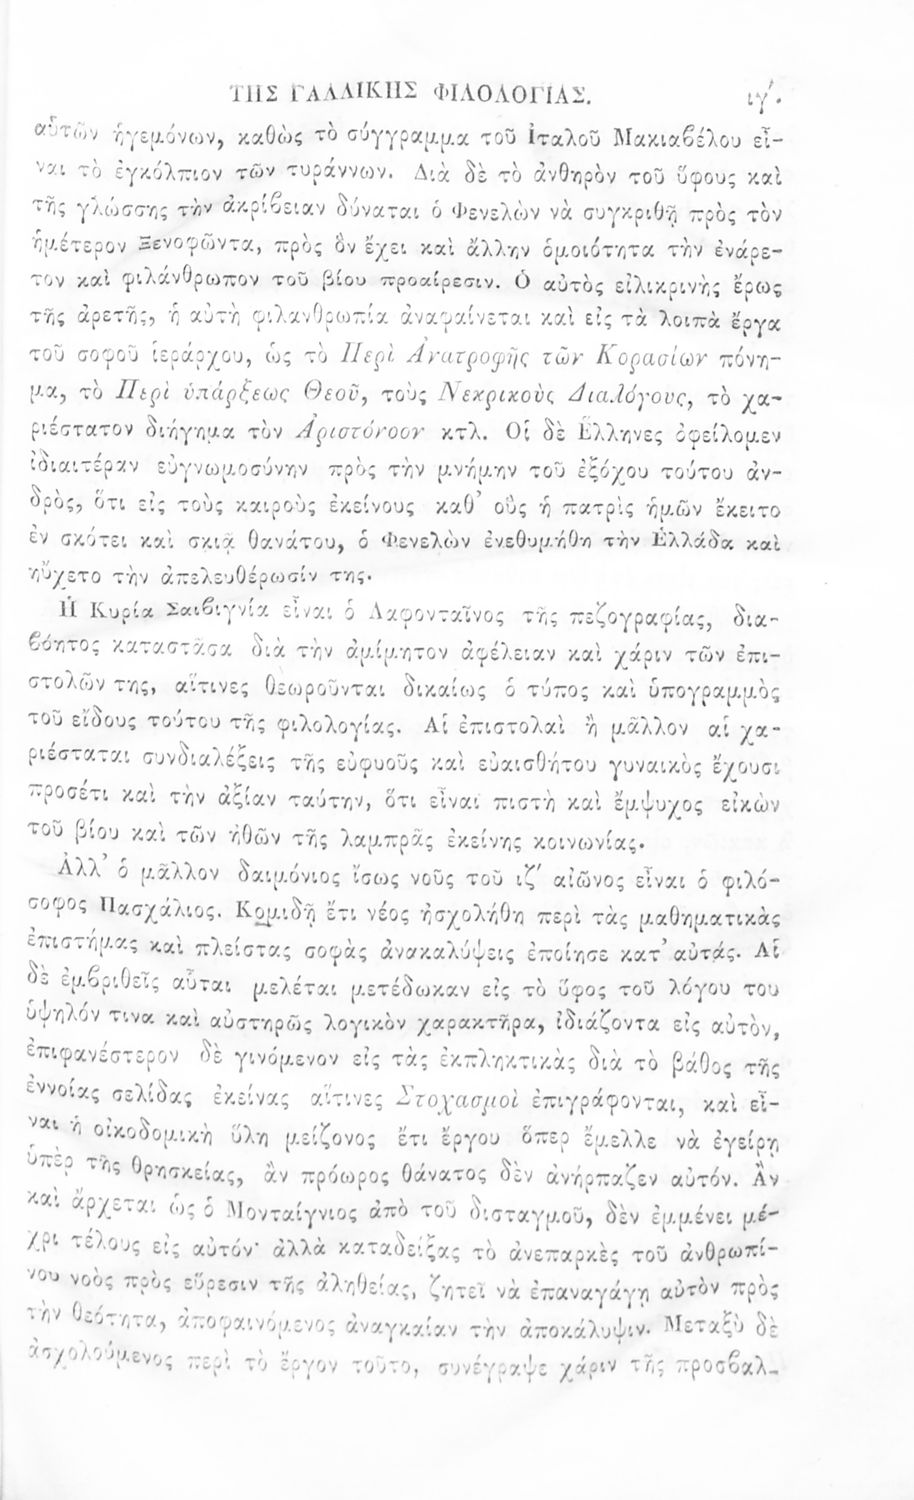 ΤΗΣ ΓΑΛΛΙΚΗΣ ΦΙΛΟΛΟΓΙΑΣ. ιγ΄.
αὐτῶν ἡγεμόνων, καθὼς τὸ σύγγραμμα τοῦ Ἰταλοῦ Μακιαβέλου εἶ-
ναι τὸ ἐγκόλπιον τῶν τυράννων. Διὰ δὲ τὸ ἀνθηρὸν τοῦ ὕφους καὶ
τῆς γλώσσης τὴν ἀκρίβειαν δύναται ὁ Φενελὼν νὰ συγκριθῇ πρὸς τὸν
ἡμέτερον Ξενοφῶντα, πρὸς ὃν ἔχει καὶ ἄλλην ὁμοιότητα τὴν ἐνάρε-
τον καὶ φιλάνθρωπον τοῦ βίου προαίρεσιν. Ὁ αὐτὸς εἰλικρινὴς ἔρως
τῆς ἀρετῆς, ἡ αὐτὴ φιλανθρωπία ἀναφαίνεται καὶ εἰς τὰ λοιπὰ ἔργα
τοῦ σοφοῦ ἱεράρχου, ὡς τὸ Περὶ Ἀνατροφῆς τῶν Κορασίων πόνη-
μα, τὸ Περὶ ὑπάρξεως Θεοῦ, τοὺς Νεκρικοὺς Διαλόγους, τὸ χα-
ριέστατον διήγημα τὸν Ἀριστόνοον κτλ. Οἱ δὲ Ἕλληνες ὀφείλομεν
ἰδιαιτέραν εὐγνωμοσύνην πρὸς τὴν μνήμην τοῦ ἐξόχου τούτου ἀν-
δρὸς, ὅτι εἰς τοὺς καιροὺς ἐκείνους καθ’ οὓς ἡ πατρὶς ἡμῶν ἔκειτο
ἐν σκότει καὶ σκιᾷ θανάτου, ὁ Φενελὼν ἐνεθυμήθη τὴν Ἑλλάδα καὶ
ηὔχετο τὴν ἀπελευθέρωσίν της.
Ἡ Κυρία Σαιβιγνία εἶναι ὁ Λαφονταῖνος τῆς πεζογραφίας, δια-
βόητος καταστᾶσα διὰ τὴν ἀμίμητον ἀφέλειαν καὶ χάριν τῶν ἐπι-
στολῶν της, αἵτινες θεωροῦνται δικαίως ὁ τύπος καὶ ὑπογραμμὸς
τοῦ εἴδους τούτου τῆς φιλολογίας. Αἱ ἐπιστολαὶ ἢ μᾶλλον αἱ χα-
ριέσταται συνδιαλέξεις τῆς εὐφυοῦς καὶ εὐαισθήτου γυναικὸς ἔχουσι
προσέτι καὶ τὴν ἀξίαν ταύτην, ὅτι εἶναι πιστὴ καὶ ἔμψυχος εἰκὼν
τοῦ βίου καὶ τῶν ἠθῶν τῆς λαμπρᾶς ἐκείνης κοινωνίας.
Ἀλλ’ ὁ μᾶλλον δαιμόνιος ἴσως νοῦς τοῦ ιζ΄ αἰῶνος εἶναι ὁ φιλό-
σοφος Πασχάλιος. Κομιδῇ ἔτι νέος ἠσχολήθη περὶ τὰς μαθηματικὰς
ἐπιστήμας καὶ πλείστας σοφὰς ἀνακαλύψεις ἐποίησε κατ’ αὐτάς. Αἱ
δὲ ἐμβριθεῖς αὗται μελέται μετέδωκαν εἰς τὸ ὕφος τοῦ λόγου του
ὑψηλόν τινα καὶ αὐστηρῶς λογικὸν χαρακτῆρα, ἰδιάζοντα εἰς αὐτὸν,
ἐπιφανέστερον δὲ γινόμενον εἰς τὰς ἐκπληκτικὰς διὰ τὸ βάθος τῆς
ἐννοίας σελίδας ἐκείνας αἵτινες Στοχασμοὶ ἐπιγράφονται, καὶ εἶ-
ναι ἡ οἰκοδομικὴ ὕλη μείζονος ἔτι ἔργου ὅπερ ἔμελλε νὰ ἐγείρῃ
ὑπὲρ τῆς θρησκείας, ἂν πρόωρος θάνατος δὲν ἀνήρπαζεν αὐτόν. Ἂν
καὶ ἄρχεται ὡς ὁ Μονταίγνιος ἀπὸ τοῦ δισταγμοῦ, δὲν ἐμμένει μέ-
χρι τέλους εἰς αὐτόν· ἀλλὰ καταδείξας τὸ ἀνεπαρκὲς τοῦ ἀνθρωπί-
νου νοὸς πρὸς εὕρεσιν τῆς ἀληθείας, ζητεῖ νὰ ἐπαναγάγῃ αὐτὸν πρὸς
τὴν θεότητα, ἀποφαινόμενος ἀναγκαίαν τὴν ἀποκάλυψιν. Μεταξὺ δὲ
ἀσχολούμενος περὶ τὸ ἔργον τοῦτο, συνέγραψε χάριν τῆς προσβαλ-